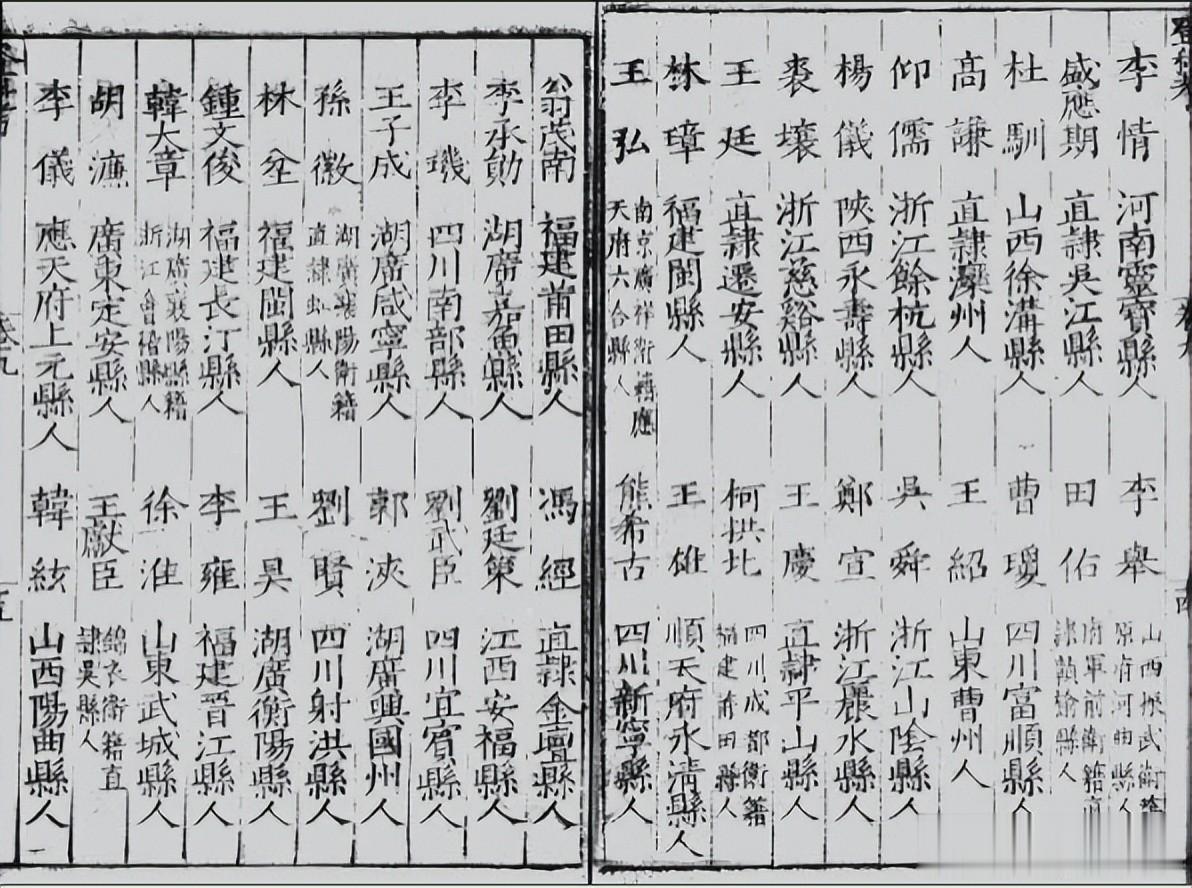 李情 河南靈寶縣人 李舉 山西振武衛籍 原府河曲縣人
盛應期 直隸吳江縣人 田佑 府軍前衛籍直隸贛榆縣人
杜馴 山西徐溝縣人 曹瓊 四川富順縣人
高謙 直隸灤州人 王紹 山東曹州人
仰儒 浙江餘杭縣人 吳舜 浙江山陰縣人
楊儀 陝西永壽縣人 鄭宣 浙江麗水縣人
壤 浙江慈谿縣人 王慶 直隸平山縣人
王廷 直隸遷安縣人 柯拱北 四川成都衛籍福建莆田縣人
林璋 福建閩縣人 王雄 順天府永清縣人
王弘 南京廣洋衛籍應天府六合縣人 熊希古 四川新寧縣人
翁茂南 福建莆田縣人 馮經 直隸金壇縣人
李承勛 湖廣嘉魚縣人 劉廷策 江西安福縣人
李璣 四川南部縣人 劉武臣 四川宜賓縣人
王子成 湖廣咸寧縣人 郭浹 湖廣興國州人
孫徽 湖廣襄陽衛籍直隸虹縣人 劉賢 四川射洪縣人
林坌 福建閩縣人 王昊 湖廣衡陽縣人
鍾文俊 福建長汀縣人 李雍 福建晉江縣人
韓大章 湖廣襄陽縣籍浙江會稽縣人 徐淮 山東武城縣人
胡濂 廣東定安縣人 王獻臣 錦衣衛籍直隸吳縣人
李儀 應天府上元縣人 韓絃 山西陽曲縣人